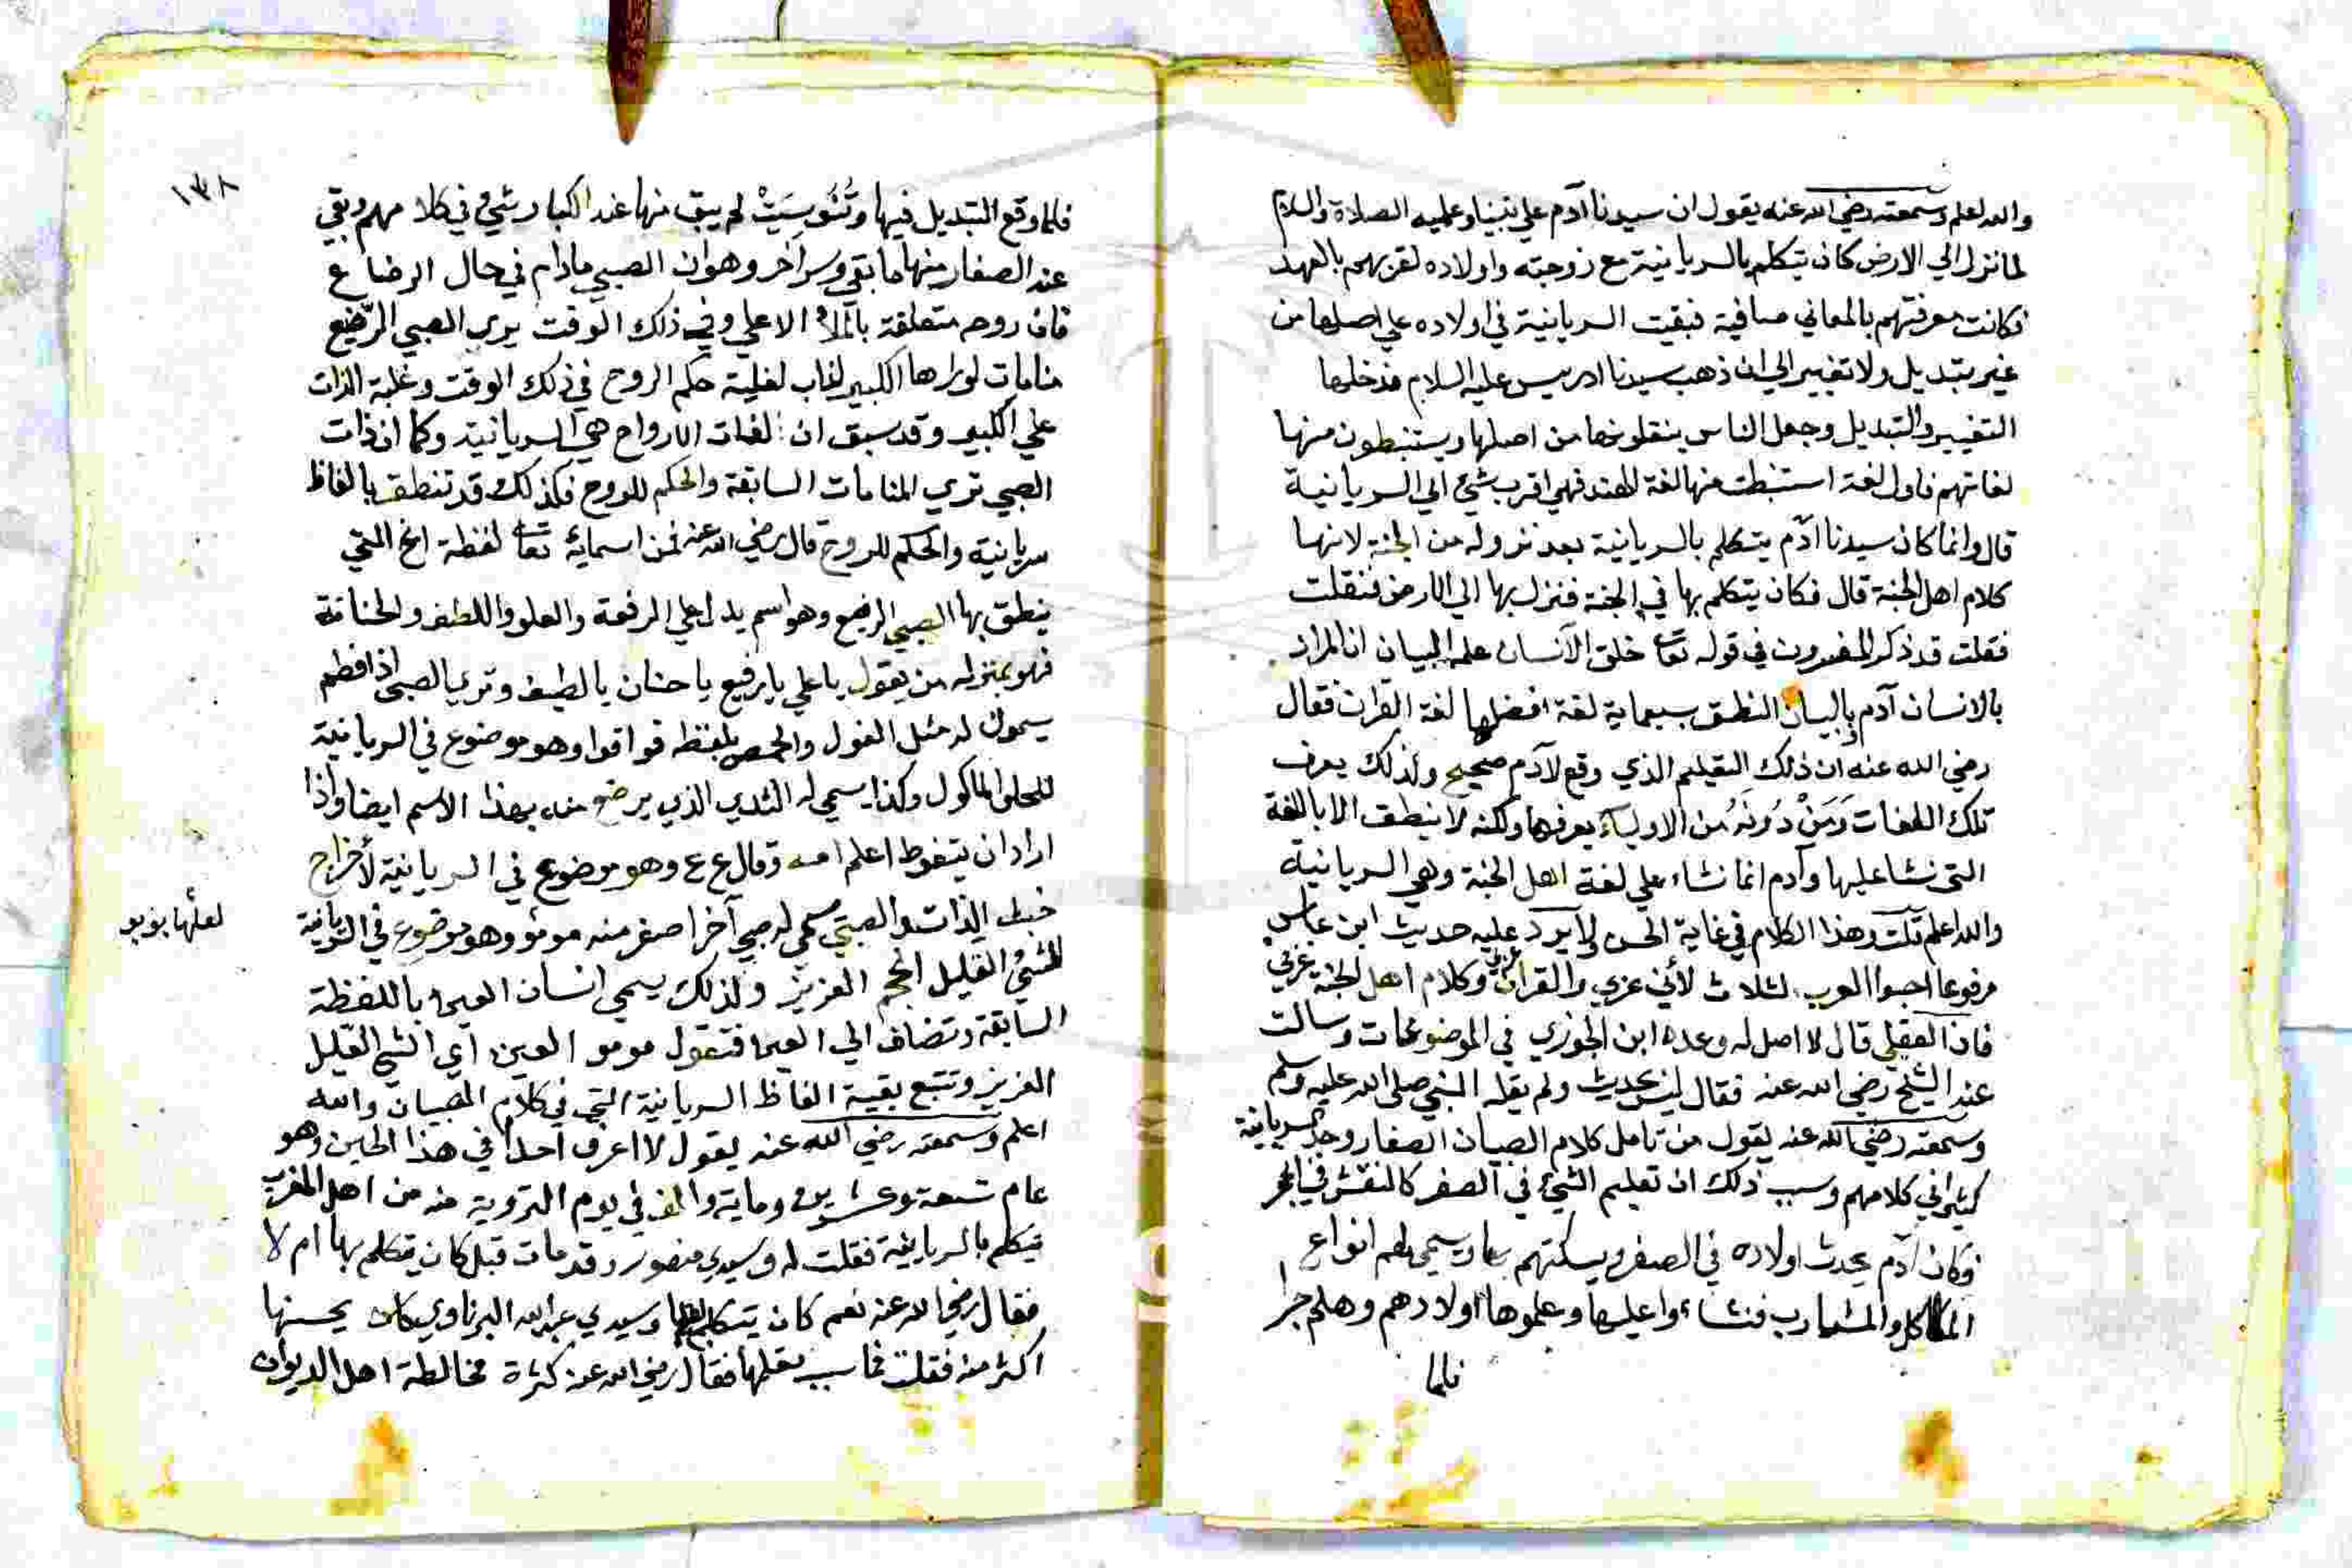 والله اعلم وسمعته رضي الله عنه يقول ان سيدنا آدم علي نبينا وعليه الصلاة والسلام
لما نزل الي الارض كان يتكلم بالسريانية مع زوجته واولاده لقربهم بالعهد
فكانت معرفتهم بالمعاني صافية فبقيت السريانية في اولاده علي اصلها من
غير تبديل ولا تغيير الي ان ذهب سيدنا ادريس عليه السلام فدخلها
التغيير والتبديل وجعل الناس ينقلونها من اصلها ويستنبطون منها
لغاتهم فاول لغة استنبطت منها لغة الهند فهي اقرب شئ الي السريانية
قال وانما كان سيدنا آدم يتكلم بالسريانية بعد نزوله من الجنة لانها
كلام اهل الجنة قال فكان يتكلم بها في الجنة فنزل بها الي الارض فنقلت
فقلت قد ذكر المفسرون في قوله تعا خلق الآنسان علمه البيان ان المراد
بالانسان آدم وبالبيان النطق بسبعماية لغة افضلها لغة القرآن فقال
رضي الله عنه ان ذلك التعليم الذي وقع لآدم صحيح ولذلك يعرف
تلك اللغات وَمَنْ دُونَهُ من الاولياء يعرفها ولكنه لا ينطق الا باللغة
التي نشا عليها وآدم انما نشاء علي لغة اهل الجنة وهي السريانية
والله اعلم قلت وهذا الكلام في غاية الحسن ولا يرد عليه حديث ابن عباس
مرفوعا احبوا العرب لثلاث لأني عربي والقرآن عربي وكلام اهل الجنة عربي
فان العقيلي قال لا اصل له وعده ابن الجوزي في الموضوعات وسالت
عنه الشيخ رضي الله عنه فقال ليس بحديث ولم يقله النبي صلى الله عليه وسلم
وسمعته رضي الله عنه يقول من تامل كلام الصبيان الصغار وجد السريانية
كثيرا في كلامهم وسبب ذلك ان تعليم الشئ في الصغر كالنقش في الحجر
فكان آدم يحدث اولاده في الصغر ويسكتهم بها ويسمي لهم انواع
الماكل والمشارب فنشاءوا عليها وعلموها اولادهم وهلم جرا
فلما
١٣٨
فلما وقع التبديل فيها وتُنُوسِيَتْ لم يبق منها عند الكبار شئ في كلا مهم وبقي
عند الصغار منها ما بقي وسر آخر وهو ان الصبي ما دام في حال الرضا ع
فان روحه متعلقة بالملأ الاعلي وفي ذلك الوقت يري الصبي الرّضيع
منامات لو رءاها الكبير لذاب لغلبة حكم الروح في ذلك الوقت وغلبة الذات
علي الكبير وقد سبق ان لغات الارواح هي السريانية وكما ان ذات
الصبي تري المنامات السابقة والحكم للروح فكذلك قد تنطق بالفاظ
سريانية والحكم للروح قال رضي الله عنه فمن اسمايه تعا لفظة اغ التي
ينطق بها الصبي الرضيع وهو اسم يدل علي الرفعة والعلو واللطف والحنانة
فهو بمنزلة من يقول يا علي يا رفيع يا حنان يا لطيف وتري الصبي اذا فطم
يسمون له مثل الفول والحمص بلفظه فواقوا وهو موضوع في السريانية
للحلو الماكول وكذا يسمي له الثدي الذي يرضع منه بهذا الاسم ايضا واذا
اراد ان يتغوط اعلم امه وقال ع ع وهو موضوع في السريانية لأخراج
خبث الذات والصبي يسمي له صبي آخر اصغر منه مومو وهو موضوع في السريانية
لعلها بوبو
للشئ القليل الحجم العزيز ولذلك يسمي انسان العين باللفظة
السابقة وتضاف الي العين فتقول مومو العين اي الشئ القليل
العزيز وتتبع بقية الفاظ السريانية التي في كلام الصبيان والله
اعلم وسمعته رضي الله عنه يقول لا اعرف احدا في هذا الحين وهو
عام تسعة وعشرين وماية والف في يوم التروية منه من اهل المغرب
يتكلم بالسريانية فقلت له وسيدي منصور وقد مات قبل كان يتكلم بها ام لا
فقال رضي الله عنه نعم كان يتكلم بها وسيدي عبد الله البرناوي كان يحسنها
اكثر منه فقلت فما سبب تعلمها فقال رضي الله عنه كثرة مخالطة اهل الديوان